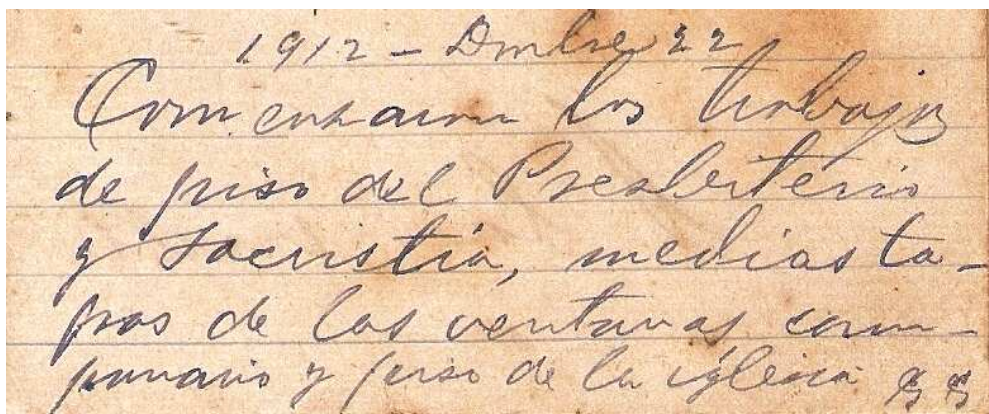 1912 - Dmbre 22
Comenzaron los trabajos
de piso del Presbiterio
y Sacristía, medias ta-
pas de las ventanas, cam-
panario y piso de la iglesia